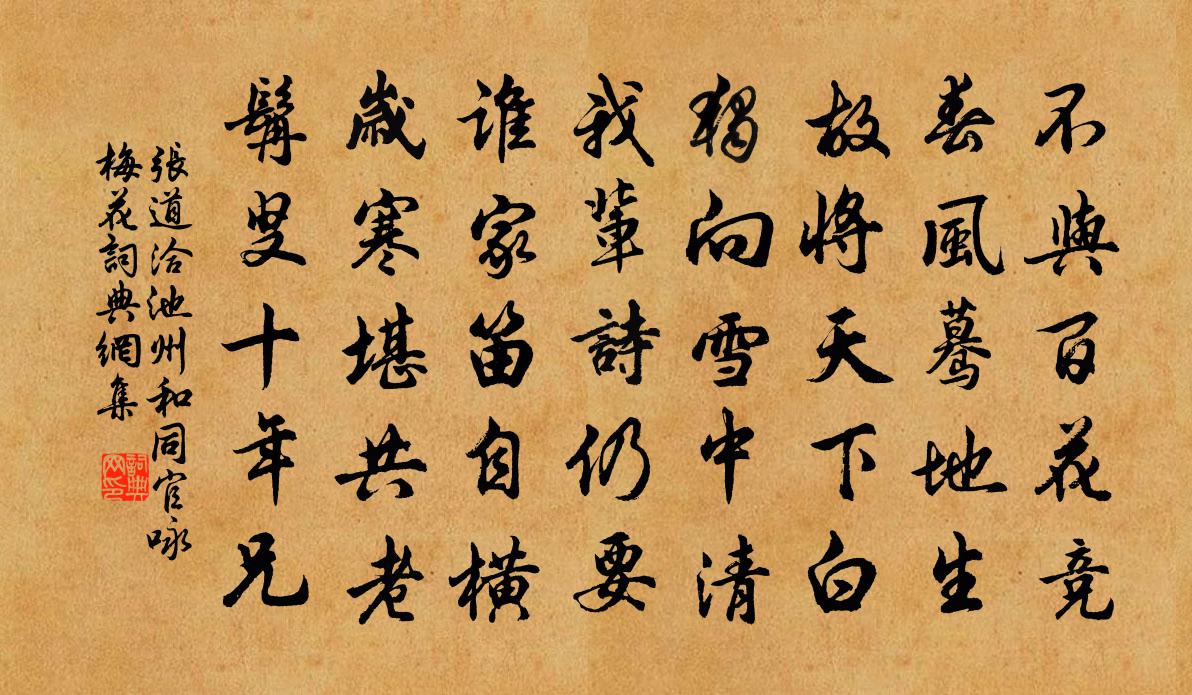 不與百花競
春風驀地生
故將天下白
獨向雪中清
我輩詩仍要
誰家笛自橫
歲寒堪共老
髯叟十年兄
張道洽池州和同官咏
梅花詞典網集
詞典
网印